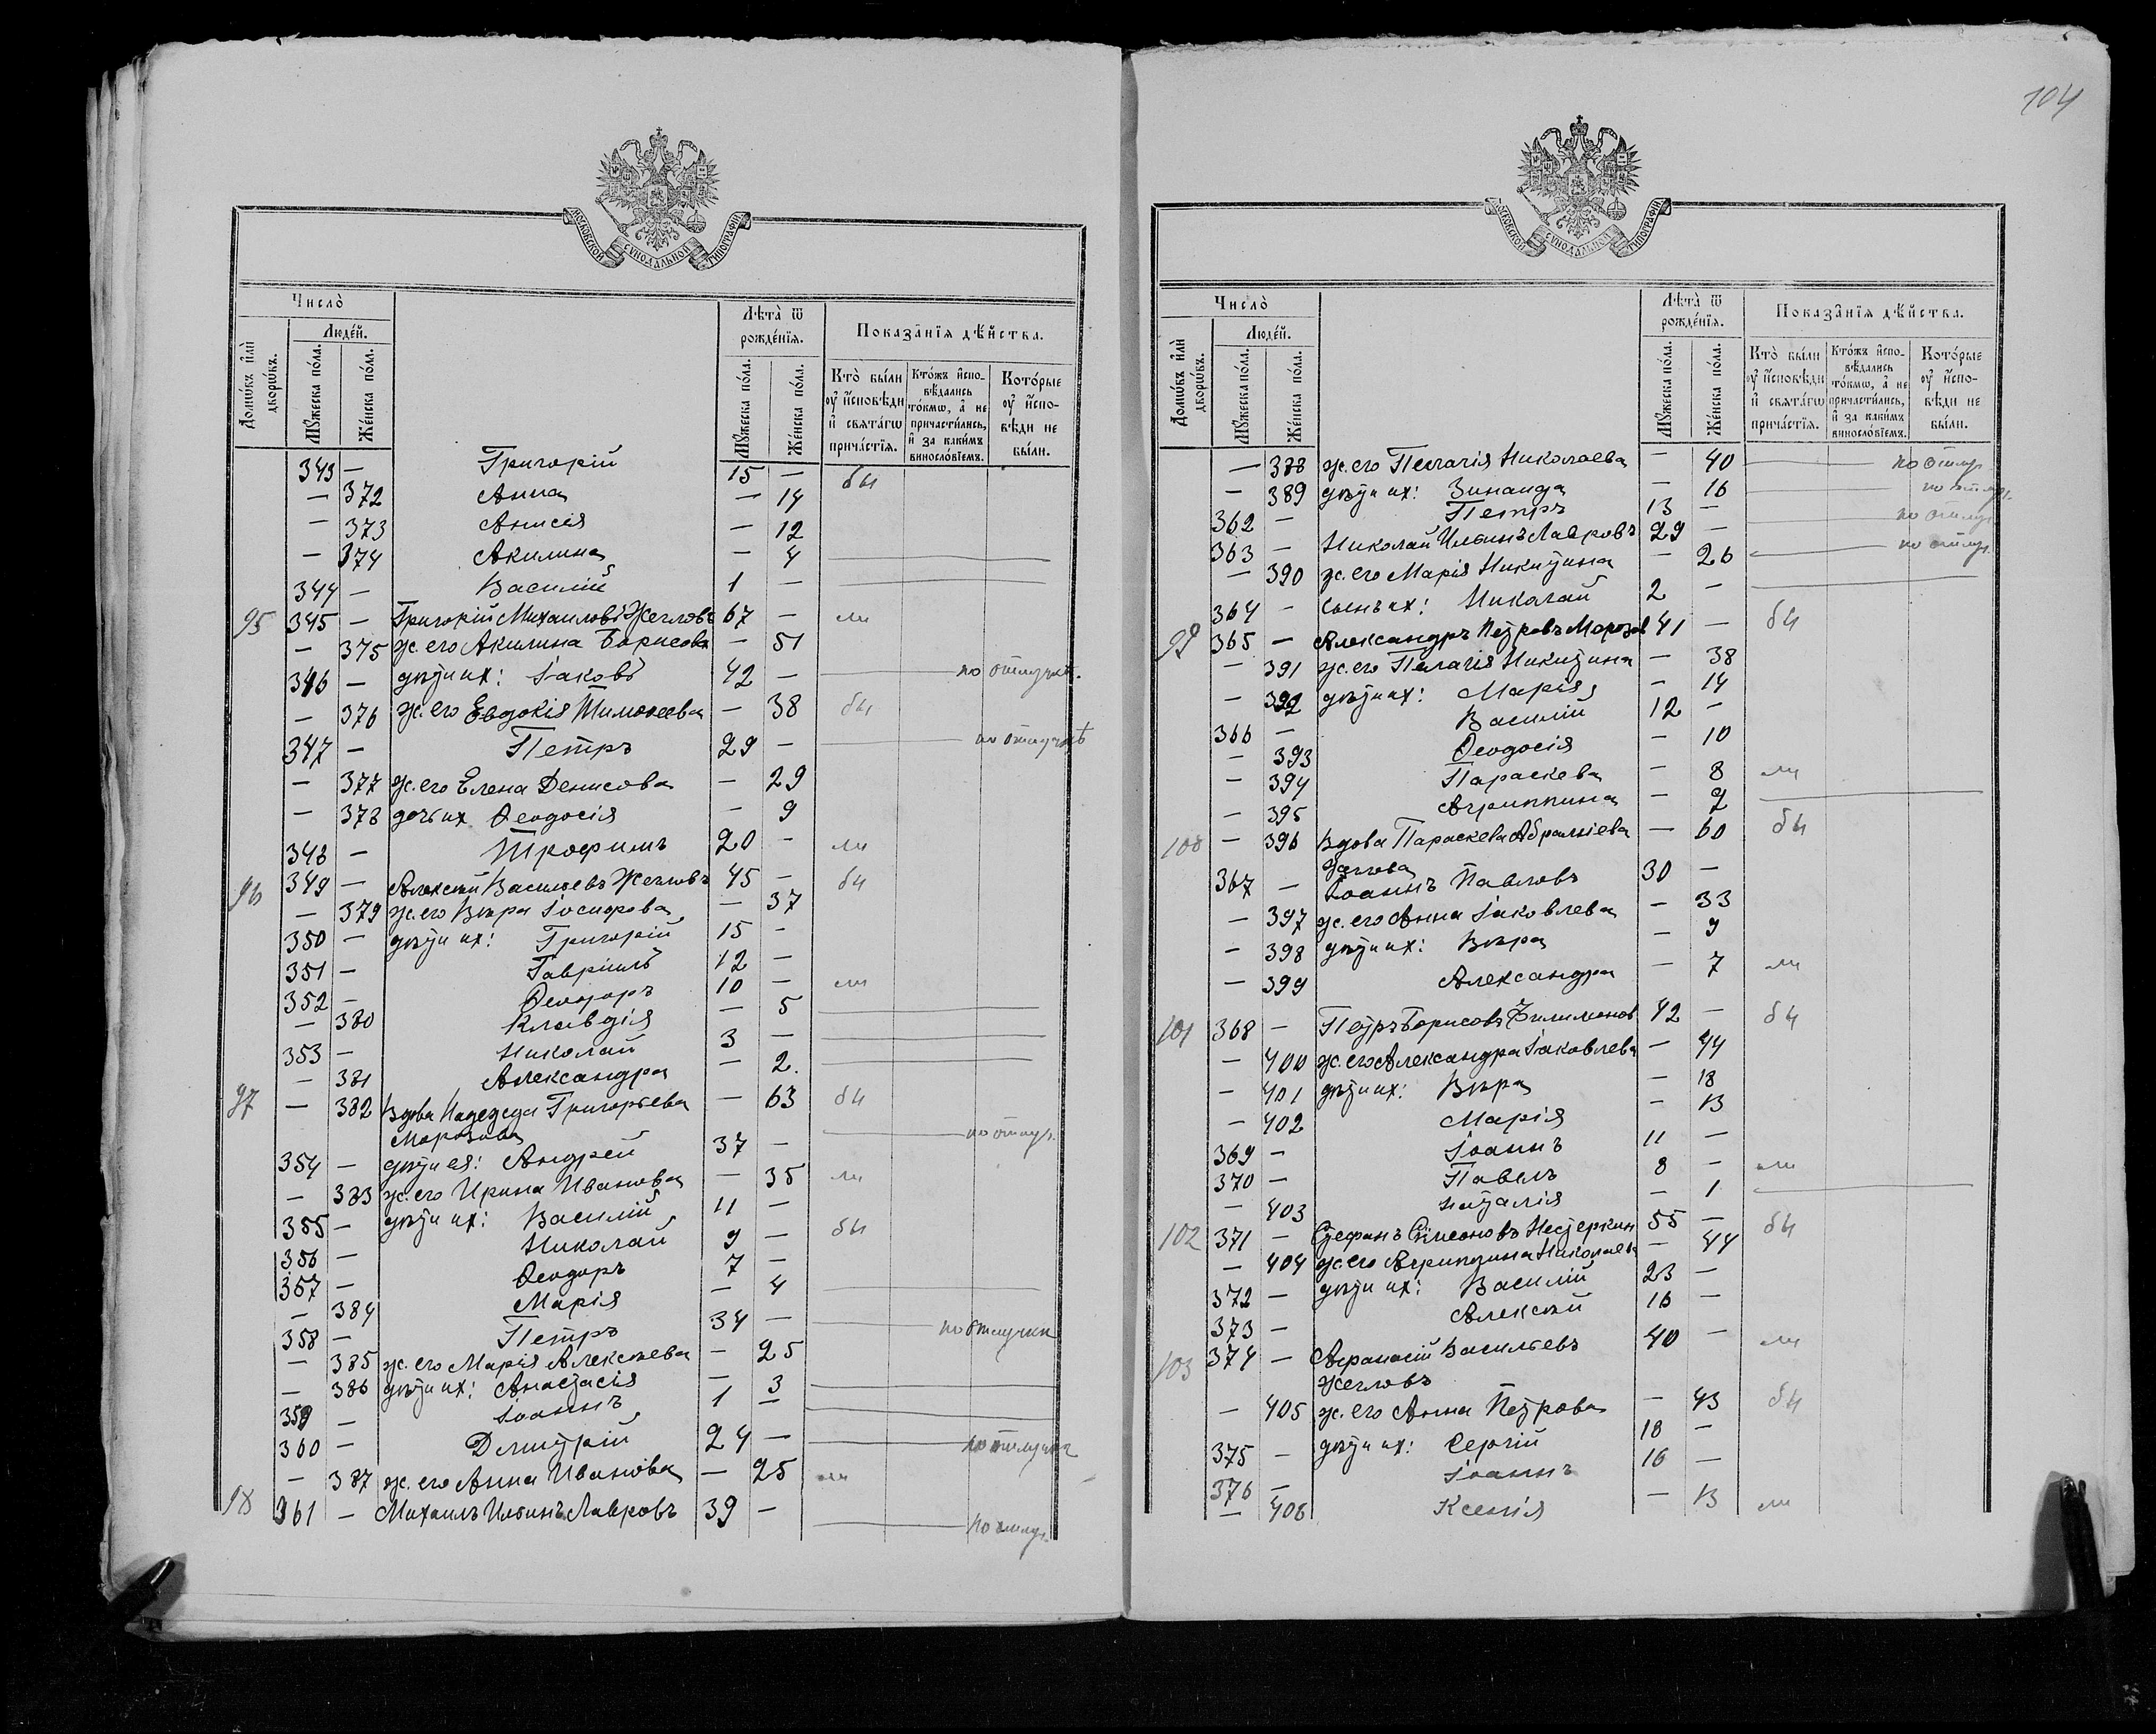 104
МОСКОВСКОЙ СѴНОДАЛЬНОЙ ТИПОГРАФІИ
Число̀
Домѡ́въ и҆лѝ дворѡ́въ.
Люде́й.
Мꙋ́жеска по́ла.
Же́нска по́ла.
Лѣ́та ѿ рожде́нїѧ.
Мꙋ́жеска по́ла.
Же́нска по́ла.
Показа̑нїѧ дѣ́йства.
Кто̀ бы́ли оу҆ и҆́сповѣди и҆ свѧта́гѡ прича́стїѧ.
Кто́жъ и҆спо-вѣ́дались то́кмѡ, а҆ не причасти́лись, и҆ за каки́мъ виносло́вїемъ.
Кото́рые оу҆ и҆спо-вѣди не бы́ли.
343 — Григорій 15 — бы
— 372 Анна — 14
— 373 Анисія — 12
— 374 Акилина — 4
344 — Василій 1 —
95 345 — Григорій Михаиловъ Жегловъ 67 — ли
— 375 ж. его Акилина Борисова — 51
346 — дѣти их: Іаковъ 42 — по отлучкѣ.
— 376 ж. его Евдокія Тимоѳеева — 38 бы
347 — Петръ 29 — по отлучкѣ
— 377 ж. его Елена Денисова — 29
— 378 дочь их Ѳеодосія — 9
348 — Трофимъ 20 — ли
96 349 — Алексѣй Васильевъ Жегловъ 45 — бы
— 379 ж. его Вѣра Іосифова — 37
350 — дѣти их: Григорій 15 —
351 — Гавріилъ 12 —
352 — Ѳеодоръ 10 — ли
— 380 Клавдія — 5
353 — Николай 3 —
— 381 Александра — 2.
97 — 382 Вдова Надежда Григорьева — 63 бы
Морозова
354 — дѣти ея: Андрей 37 — по отлуч.
— 383 ж. его Ирина Иванова — 35 ли
355 — дѣти их: Василій 11 —
356 — Николай 9 — бы
357 — Ѳеодоръ 7 —
— 384 Марія — 4
358 — Петръ 34 — по отлучки
— 385 ж. его Марія Алексѣева — 25
— 386 дѣти их: Анастасія — 3
359 — Іоаннъ 1 —
360 — Димитрій 24 — по отлучке
— 387 ж. его Анна Иванова — 25 ли
98 361 — Михаилъ Ильинъ Лавровъ 39 — по отлуч.
МОСКОВСКОЙ СѴНОДАЛЬНОЙ ТИПОГРАФІИ
Число̀
Домѡ́въ и҆лѝ дворѡ́въ.
Люде́й.
Мꙋ́жеска по́ла.
Же́нска по́ла.
Лѣ́та ѿ рожде́нїѧ.
Мꙋ́жеска по́ла.
Же́нска по́ла.
Показа̑нїѧ дѣ́йства.
Кто̀ бы́ли оу҆ и҆́сповѣди и҆ свѧта́гѡ прича́стїѧ.
Кто́жъ и҆спо-вѣ́дались то́кмѡ, а҆ не причасти́лись, и҆ за каки́мъ виносло́вїемъ.
Кото́рые оу҆ и҆спо-вѣди не бы́ли.
— 388 ж. его Пелагія Николаева — 40 по отлуч
— 389 дѣти их: Зинаида — 16 по отлуч.
362 — Петръ 13 — по отлуч
363 — Николай Ильинъ Лавровъ 29 — по отлуч.
— 390 ж. его Марія Никитина — 26
364 — сынъ их: Николай 2 —
99 365 — Александръ Петровъ Морозов 41 — бы
— 391 ж. его Пелагія Никитина — 38
— 392 дѣти их: Марія — 14
366 — Василій 12 —
— 393 Ѳеодосія — 10
— 394 Параскева — 8 ли
— 395 Агриппина — 2
100 — 396 Вдова Параскева Абрамова — 60 бы
367 — Іоаннъ Павловъ 30 —
— 397 ж. его Анна Іаковлева — 33
— 398 дѣти их: Вѣра — 9
— 399 Александра — 7 ли
101 368 — Петръ Борисовъ Филимонов 42 — бы
— 400 ж. его Александра Іаковлева — 44
— 401 дѣти их: Вѣра — 18
— 402 Марія — 13
369 — Іоаннъ 11 —
370 — Павелъ 8 — ли
— 403 Наталія — 1
102 371 — Стефанъ Симеоновъ Нестеркин 55 — бы
— 404 ж. его Агриппина Николаева — 44
372 — дѣти их: Василій 23 —
373 — Алексѣй 16 —
103 374 — Аѳанасій Васильевъ 40 — ли
Жегловъ
— 405 ж. его Анна Петрова — 43 бы
375 — дѣти их: Сергій 18 —
376 — Іоаннъ 16 —
— 406 Ксенія — 13 ли